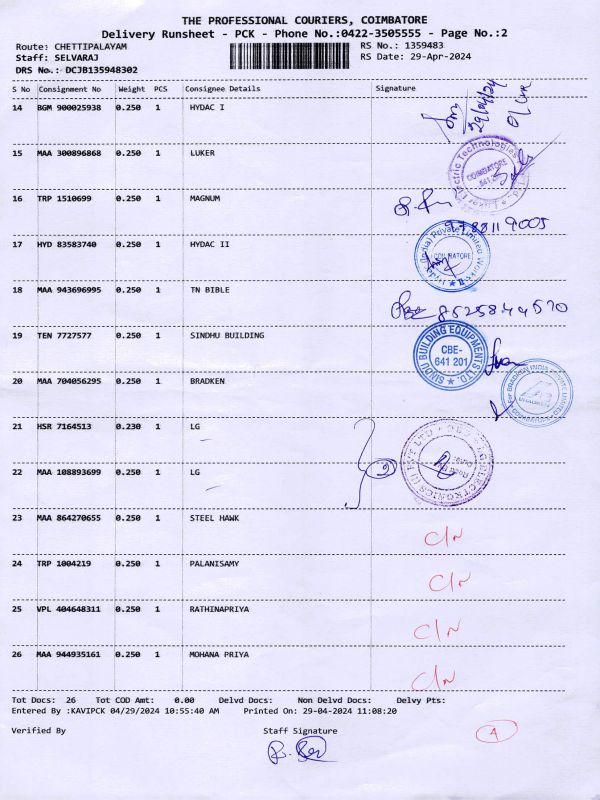 THE PROFESSIONAL COURIERS, COIMBATORE
Delivery Runsheet - PCK - Phone No.:0422-3505555 - Page No.:2
Route: CHETTIPALAYAM RS No.: 1359483
Staff: SELVARAJ RS Date: 29-Apr-2024
DRS No.: DCJB135948302
S No Consignment No Weight PCS Consignee Details Signature
14 BGM 900025938 0.250 1 HYDAC I
29/04/24
15 MAA 300896868 0.250 1 LUKER
Electric Technologies
COIMBATORE
16 TRP 1510699 0.250 1 MAGNUM
9788119005
17 HYD 83583740 0.250 1 HYDAC II
(India) Private Limited
COIMBATORE
18 MAA 943696995 0.250 1 TN BIBLE
19 TEN 7727577 0.250 1 SINDHU BUILDING
SINDU BUILDING EQUIPMENTS LTD.
CBE-
641 201
20 MAA 704056295 0.250 1 BRADKEN
For BRADKEN INDIA PRIVATE LIMITED
COIMBATORE
21 HSR 7164513 0.230 1 LG
22 MAA 108893699 0.250 1 LG
2
23 MAA 864270655 0.250 1 STEEL HAWK
C/N
24 TRP 1004219 0.250 1 PALANISAMY
C/N
25 VPL 404648311 0.250 1 RATHINAPRIYA
C/N
26 MAA 944935161 0.250 1 MOHANA PRIYA
C/N
Tot Docs: 26 Tot COD Amt: 0.00 Delvd Docs: Non Delvd Docs: Delvy Pts:
Entered By :KAVIPCK 04/29/2024 10:55:40 AM Printed On: 29-04-2024 11:08:20
Verified By Staff Signature
A